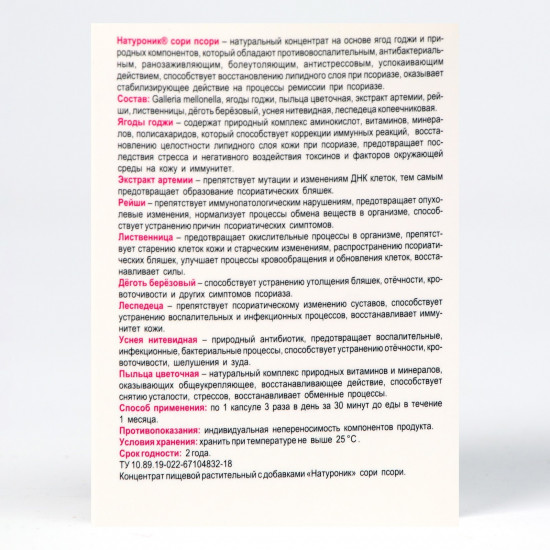 Натуроник® сори псори – натуральный концентрат на основе ягод годжи и при-
родных компонентов, который обладают противовоспалительным, антибактериаль-
ным, ранозаживляющим, болеутоляющим, антистрессовым, успокаивающим
действием, способствует восстановлению липидного слоя при псориазе, оказывает
стабилизирующее действие на процессы ремиссии при псориазе.
Состав: Galleria mellonella, ягоды годжи, пыльца цветочная, экстракт артемии, рей-
ши, лиственницы, дёготь берёзовый, уснея нитевидная, леспедеца копеечниковая.
Ягоды годжи – содержат природный комплекс аминокислот, витаминов, минера-
лов, полисахаридов, который способствует коррекции иммунных реакций, восста-
новлению целостности липидного слоя кожи при псориазе, предотвращает пос-
ледствия стресса и негативного воздействия токсинов и факторов окружающей
среды на кожу и иммунитет.
Экстракт артемии – препятствует мутации и изменениям ДНК клеток, тем самым
предотвращает образование псориатических бляшек.
Рейши – препятствует иммунопатологическим нарушениям, предотвращает опухо-
левые изменения, нормализует процессы обмена веществ в организме, способ-
ствует устранению причин псориатических симптомов.
Лиственница – предотвращает окислительные процессы в организме, препятст-
вует старению клеток кожи и старческим изменениям, распространению псориати-
ческих бляшек, улучшает процессы кровообращения и обновления клеток, восста-
навливает силы.
Дёготь берёзовый – способствует устранению утолщения бляшек, отёчности, кро-
воточивости и других симптомов псориаза.
Леспедеца – препятствует псориатическому изменению суставов, способствует
устранению воспалительных и инфекционных процессов, восстанавливает имму-
нитет кожи.
Уснея нитевидная – природный антибиотик, предотвращает воспалительные,
инфекционные, бактериальные процессы, способствует устранению отёчности, кро-
воточивости, шелушения и зуда.
Пыльца цветочная – натуральный комплекс природных витаминов и минералов,
оказывающих общеукрепляющее, восстанавливающее действие, способствует
снятию усталости, стрессов, восстанавливает обменные процессы.
Способ применения: по 1 капсуле 3 раза в день за 30 минут до еды в течение
1 месяца.
Противопоказания: индивидуальная непереносимость компонентов продукта.
Условия хранения: хранить при температуре не выше 25 °С .
Срок годности: 2 года.
ТУ 10.89.19-022-67104832-18
Концентрат пищевой растительный с добавками «Натуроник» сори псори.